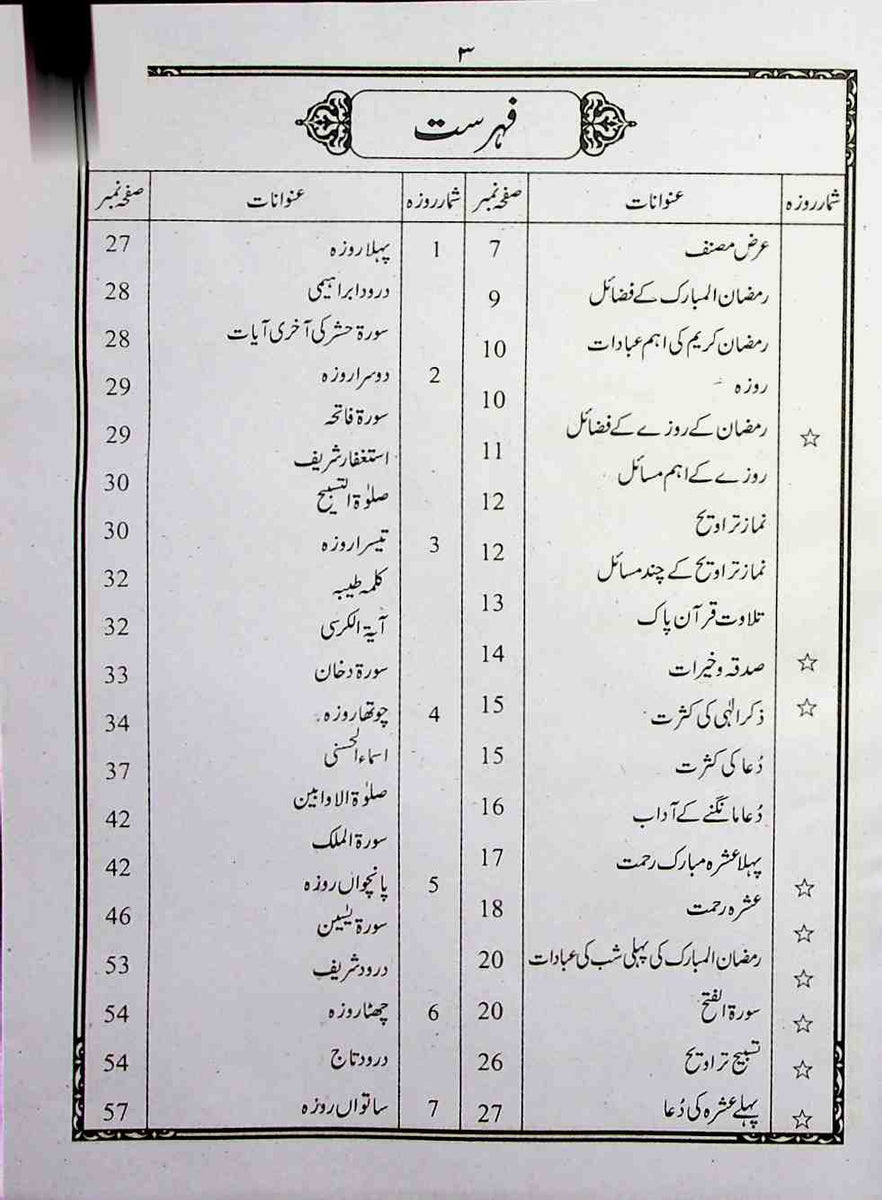 ۳
فہرست
شمار روزہ عنوانات صفحہ نمبر شمار روزہ عنوانات صفحہ نمبر
عرض مصنف 7
رمضان المبارک کے فضائل 9
رمضان کریم کی اہم عبادات 10
روزہ 10
☆ رمضان کے روزے کے فضائل
روزے کے اہم مسائل 11
نماز تراویح 12
نماز تراویح کے چند مسائل 12
تلاوت قرآن پاک 13
☆ صدقہ و خیرات 14
☆ ذکر الٰہی کی کثرت 15
دُعا کی کثرت 15
دُعا مانگنے کے آداب 16
پہلا عشرہ مبارک رحمت 17
☆ عشرہ رحمت 18
☆
☆ رمضان المبارک کی پہلی شب کی عبادات 20
☆ سورۃ الفتح 20
☆ تسبیح تراویح 26
☆ پہلے عشرہ کی دُعا 27
1 پہلا روزہ 27
درود ابراہیمی 28
سورۃ حشر کی آخری آیات 28
2 دوسرا روزہ 29
سورۃ فاتحہ 29
استغفار شریف
صلوٰۃ التسبیح 30
3 تیسرا روزہ 30
کلمہ طیبہ 32
آیۃ الکرسی 32
سورۃ دخان 33
4 چوتھا روزہ 34
اسماء الحسنی 37
صلوٰۃ الاوابین
سورۃ الملک 42
5 پانچواں روزہ 42
سورۃ یٰسین 46
درود شریف 53
6 چھٹا روزہ 54
درود تاج 54
7 ساتواں روزہ 57